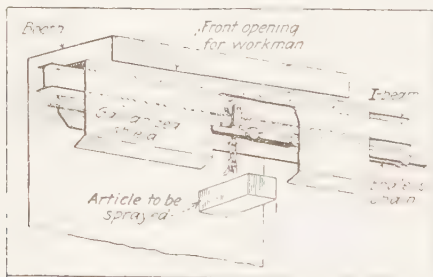 Booth
Front opening
for workman
I-beam
Article to be
sprayed
chain